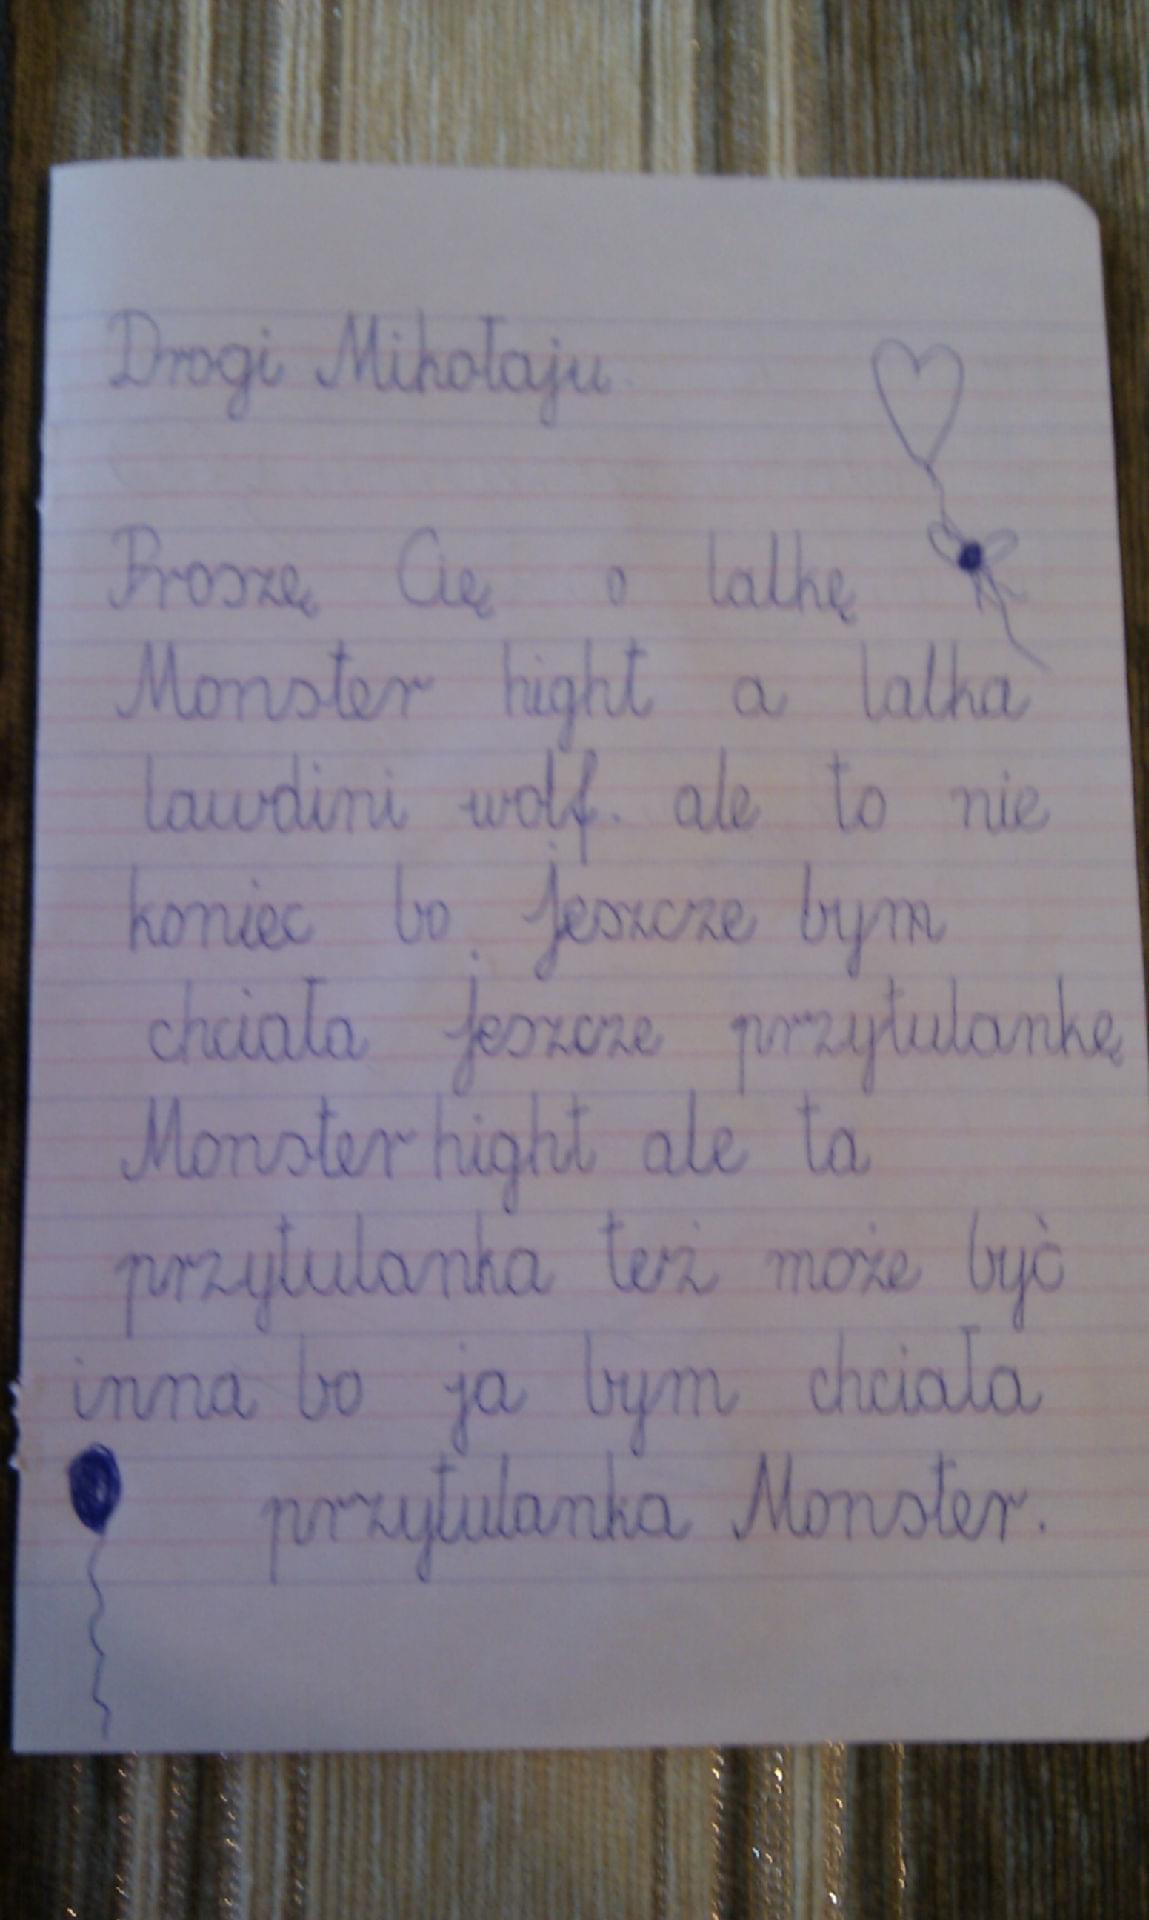 Drogi Mikołaju.
Proszę Cię o lalkę
Monster hight a lalka
lawdini wolf. ale to nie
koniec bo jeszcze bym
chciała jeszcze przytulankę
Monster hight ale ta
przytulanka też może być
inna bo ja bym chciała
przytulanka Monster.